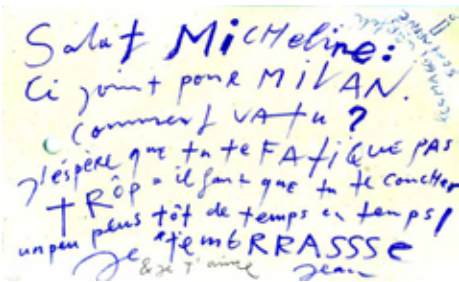 Salut MicHeline:
Ci joint pour MILAN.
Comment VA tu ?
J'éspère que tu te FAtiGUE PAS
tRôp . il faut que tu te coucHer
un peu plus tôt de temps en temps!
Je t'embRRASSSe
& je t'aime Jean